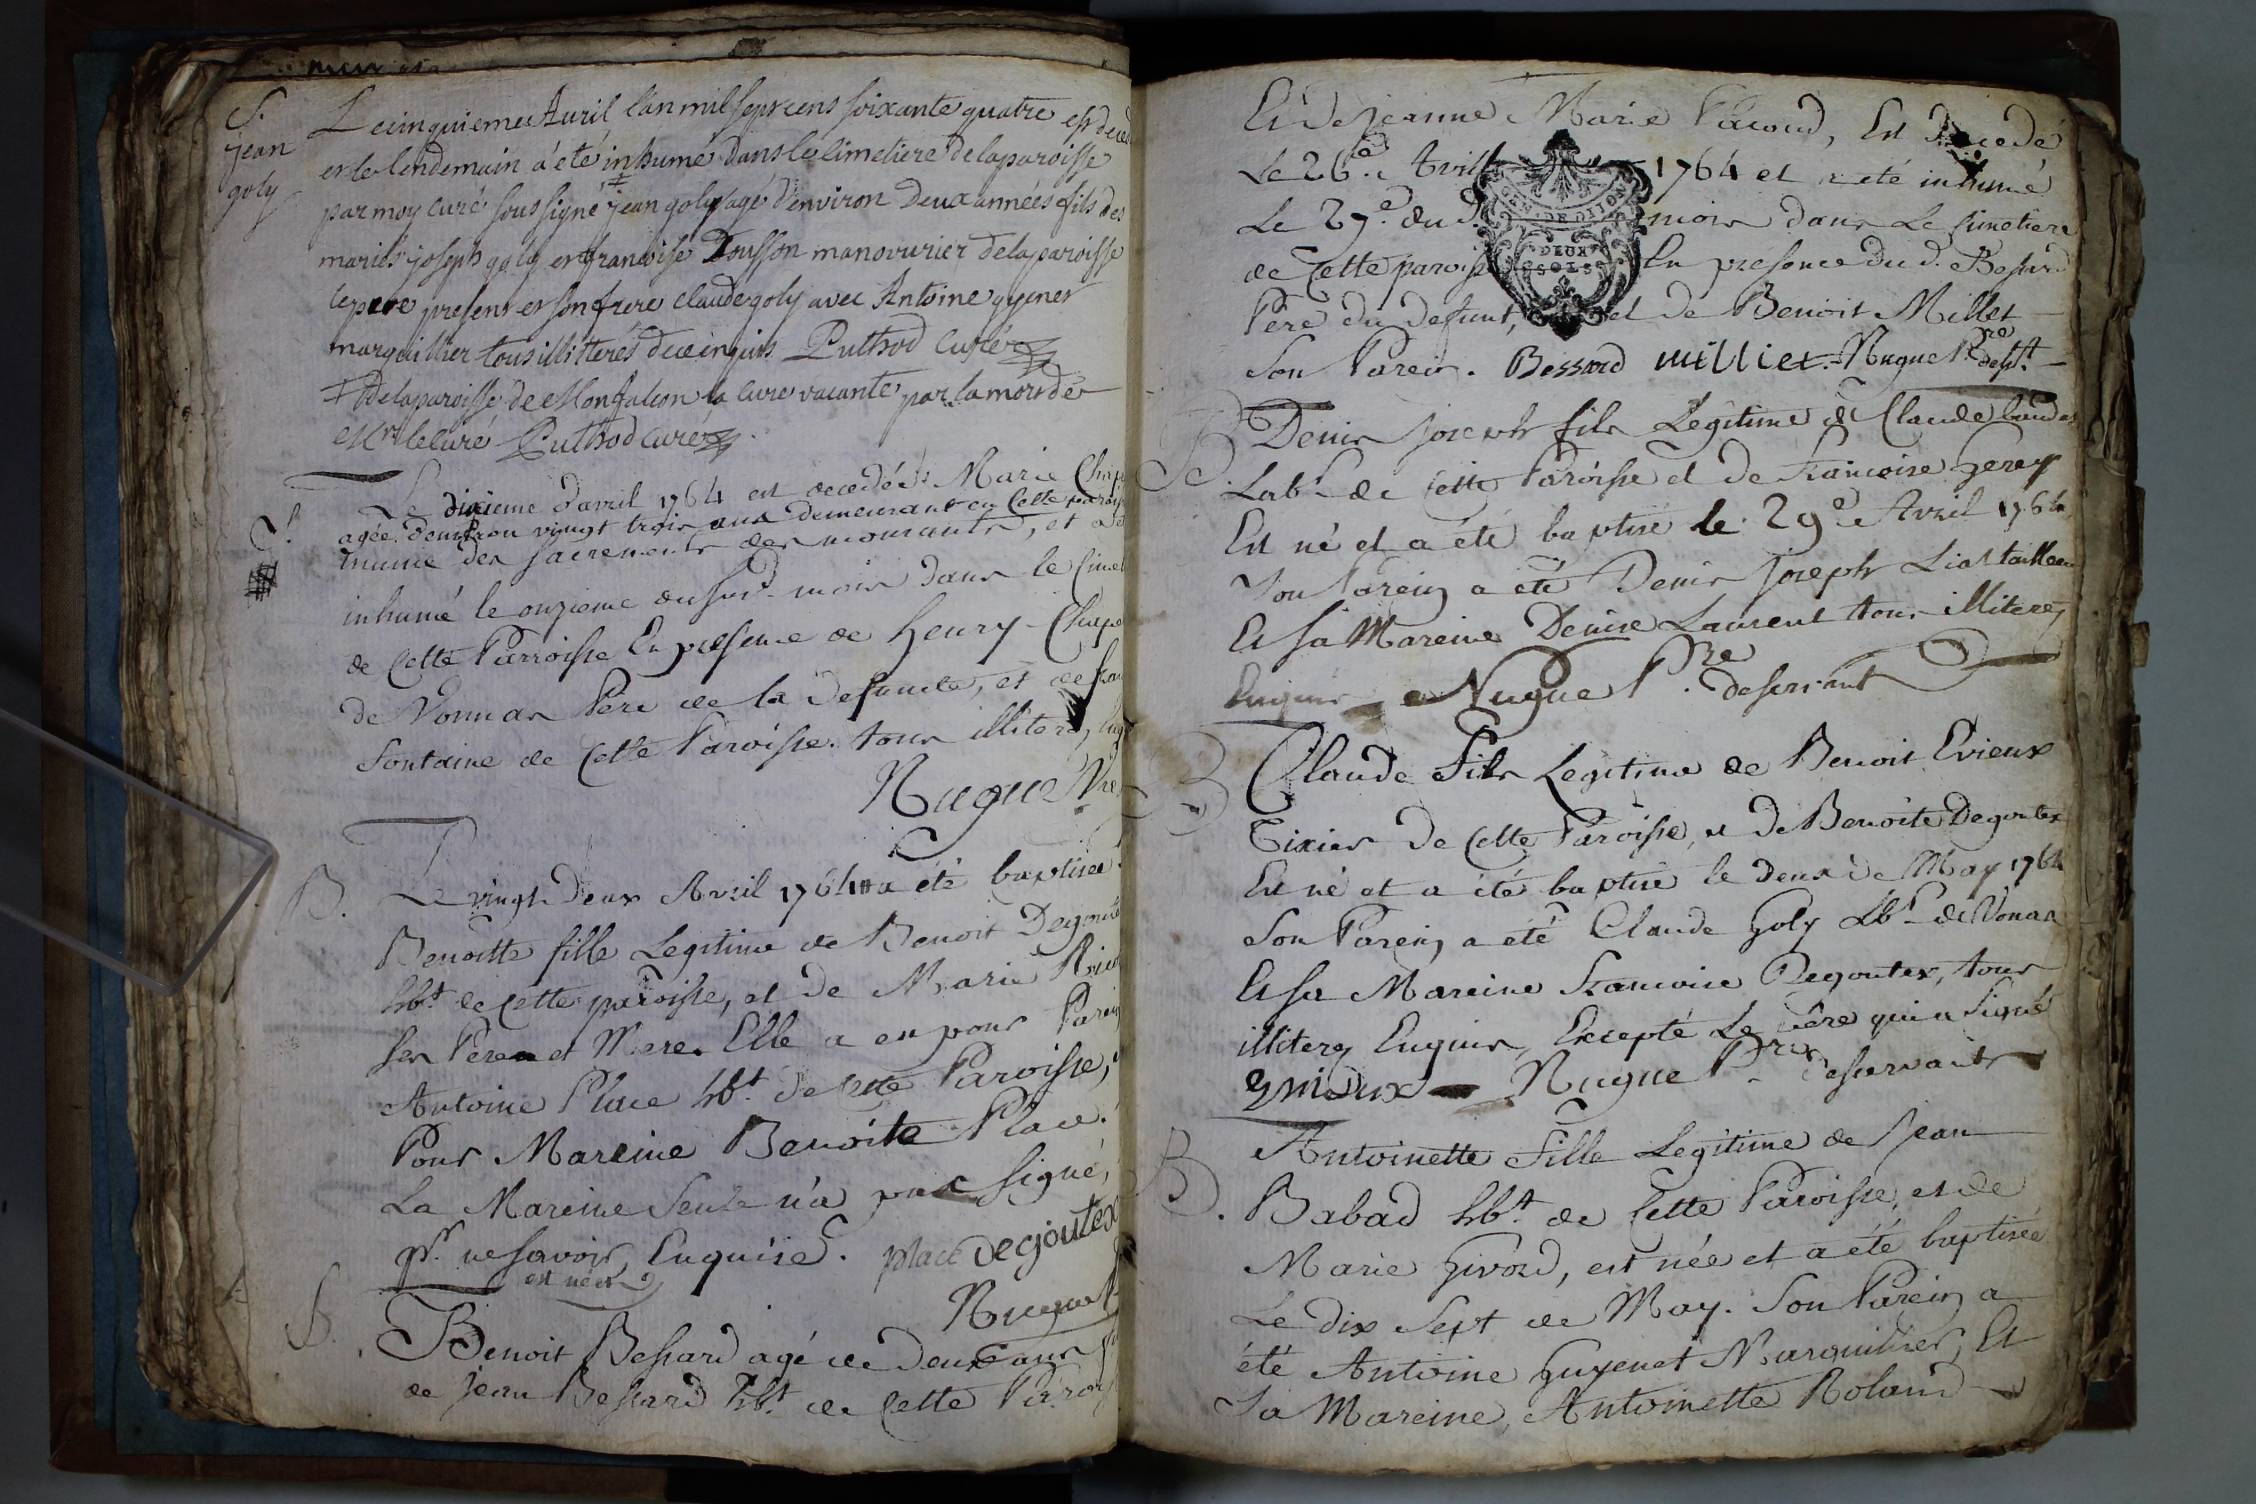 S.
jean
goly
Le cinquieme Auril l'an mil sept cens soixante quatre est deced
et le lendemain a été inhumé dans le cimetiere de la paroisse
par moy curé soussigné + jean goly agé d'environ deux années fils des
mariés joseph goly et francoise Tousson manouurier de la paroisse
le pere present et son frere claude goly avec Antoine guenet
marguillier tous illitterés de ce enquis Puthod Curé
+ de la paroisse de Monfalcon la cure vacante par la mort de
Mr le Curé Puthod curé
S.
Le dixieme d'avril 1764 est decedée Marie Chap
agée d'environ vingt trois ans demeurant en Cette parois
munie des sacrements des mourants, et a é
inhumé le onzieme du susd. mois dans le Cimet
de Cette Parroisse En presence de Henry Chape
de Vonnas Pere de la Defuncte, et de fran
fontaine de Cette Paroisse. tous illiterez Enq
Nugue Pre
B.
Le vingt Deux Avril 1764 a été baptisée
Benoitte fille Legitime de Benoit Degoute
hbt. de Cette paroisse, et de Marie
ses Pere et Mere. Elle a eu pour Parein
Antoine Place hbt. de cette Paroisse, et
Pour Mareine Benoite Place.
La Mareine Seule n'a pas signé,
pr. ne savoir, Enquise. place Degoutex
Nugue P
est née
S.
Benoit Bessard agé de deux ans f
de jean Bessard hbt. de Cette Parois
Et de jeanne Marie Pacoud, Est Decedé
Le 26e. Avril 1764 et a eté inhumé
Le 27e. du d. mois dans le Cimetiere
de Cette paroisse En presence du d. Bessard
GEN. DE DIJON
DEUX
SOLS
Pere du defunt, et de Benoit Millet
Son Parein. Bessard millier Nugue Pre desst.
B
Denis joseph fils Legitime de Claude
Labr. de Cette Paroisse et de francoise Gerey
Est né et a été baptisé le 29e. Avril 1764
Son Parein a été Denis joseph Liat tailleur
Et sa Mareine Denise Laurent tous illiterez
Enquis Nugue Pre. desservant
B
Claude fils Legitime de Benoit Evieux
Tixier de Cette Paroisse, et de Benoite Degoutex
Est né et a été baptisé le deux de May 1764
Son Parein a été Claude Goly Lbr. de Vonas
Et sa Mareine francoise Degoutex, tous
illiterez Enquis, Excepté Le Pere qui a signé
Nugue Pre. desservant
B.
Antoinette fille Legitime de jean
Babad hbt. de Cette Paroisse, et de
Marie Givord, est née et a été baptisée
Le dix sept de May. Son Parein a
été Antoine Guyenet Marguillier, Et
Sa Mareine, Antoinette Roland